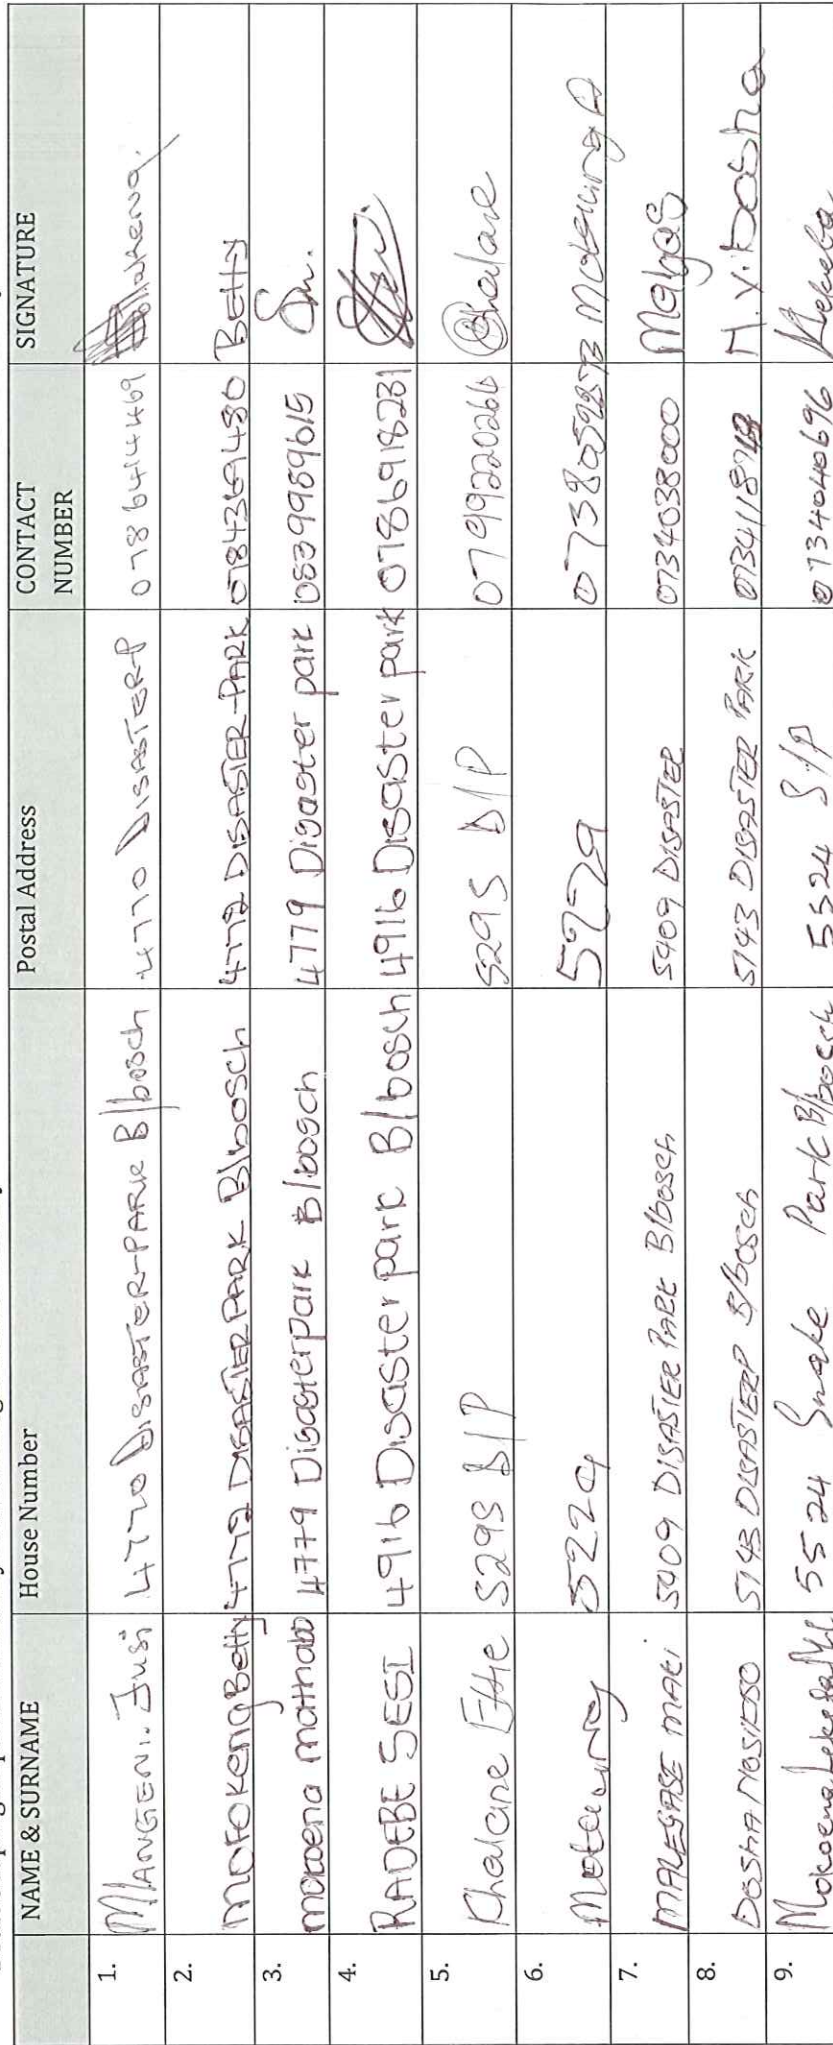 NAME & SURNAME House Number Postal Address CONTACT NUMBER SIGNATURE
1. MLANGENI. Jusi 4770 DISASTER-PARK B/bosch 4770 DISASTER-P 0786414469
2. MOFOKENG Betty 4772 DISASTER PARK B/bosch 4772 DISASTER-PARK 0784369480 Betty
3. mokoena mathabo 4779 Disasterpark B/bosch 4779 Disaster park 0839989615 Sm.
4. RADEBE SESI 4916 Disaster park B/bosch 4916 Disaster park 0786918231
5. Khalane Effie 5295 D/P 5295 D/P 0799220266 Khalane
6. 5229
7. MALEGASE MAKI 5409 DISASTER PARK B/bosch 5409 DISASTER 0734038000
8. DOSHA NOSIPHO 5143 DISASTERP B/bosch 5143 DISASTER PARK N.Y. Dosha
9. Mokoena 5524 Snake Park B/bosch 5524 S/P 0734040696